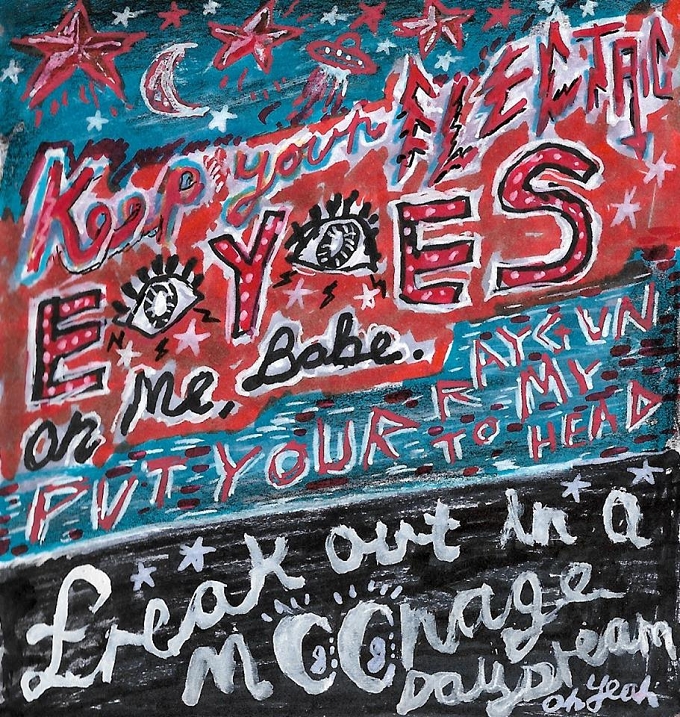 Keep your ELECTRIC
EYES
on Me, Babe.
PUT YOUR RAYGUN
TO MY
HEAD
freak out in a
MOONage
Daydream
oh Yeah